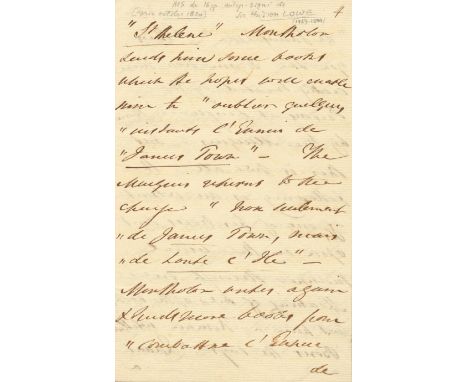 MS de 16 pp. autogr. signé de 4
(après octobre 1820) Sir Hudson LOWE
(1769-1844)
"St Helene" Montholon
sends him some books
which he hopes will enable
him to "oublier quelques
"instants l'Ennui de
"James Town" - The
Marquis returns to the
charge "non seulement
"de James Town, mais
"de toute l'Ile" -
Montholon writes again
& sends more books pour
"combattre l'Ennui
de